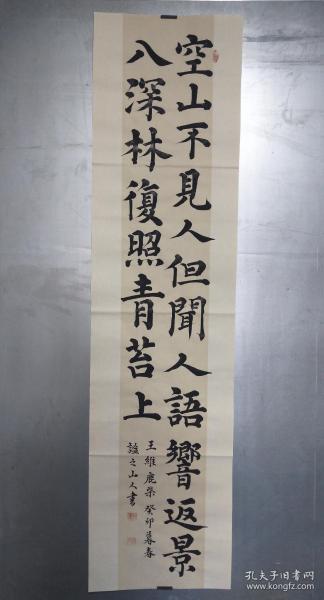 空山不見人但聞人語響返景
入深林復照青苔上
王維鹿柴癸卯暮春
謐之山人書
孔夫子旧书网
www.kongfz.com